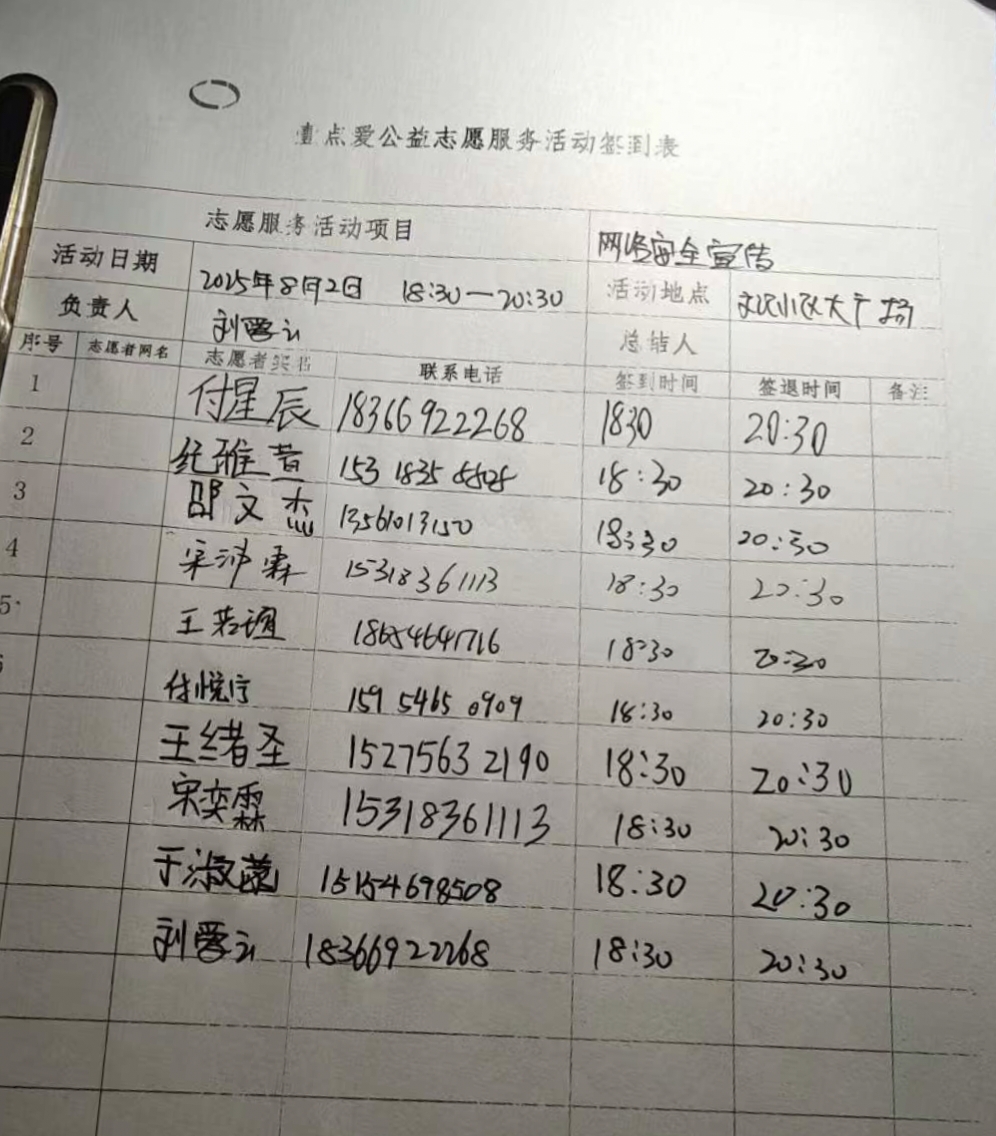 壹点爱公益志愿服务活动签到表
志愿服务活动项目 网络安全宣传
活动日期 2025年8月2日 18:30—20:30 活动地点 小区大广场
负责人 刘爱云 总结人
序号 志愿者网名 志愿者实名 联系电话 签到时间 签退时间 备注
1 付星辰 18366922268 1830 20:30
2 纪雅萱 153 1835 18:30 20:30
3 邵文杰 13561013150 18:30 20:30
4 宋沛霖 15318361113 18:30 20:30
5 王若 18654641716 18:30 20:30
付悦宁 159 5465 0909 18:30 20:30
王绪圣 15275632190 18:30 20:30
宋奕霖 15318361113 18:30 20:30
于淑 15154698508 18:30 20:30
刘爱云 18366922268 18:30 20:30